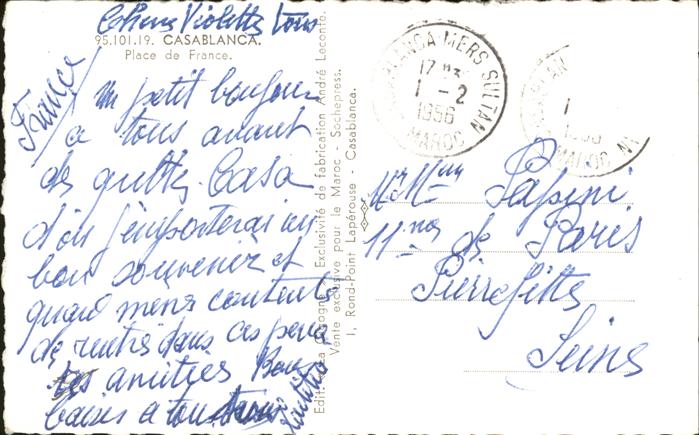 Violette
95.101.19. CASABLANCA.
Place de France.
France
un petit bonjour
a tous avant
de quitter Casa
d'où j'emporterai un
bon souvenir et
quand meme contente
de rentré dans ces
amitiés Bons
baisés a tous
Edit. La Cigogne - Exclusivité de fabrication André Leconte.
Vente exclusive pour le Maroc - Sochepress.
1, Rond-Point Lapérouse - Casablanca.
CASABLANCA MERS SULTAN
1 - 2
1956
MAROC
MAROC
Mr Mme Papini
11 de Paris
Pierrefitte
Seine